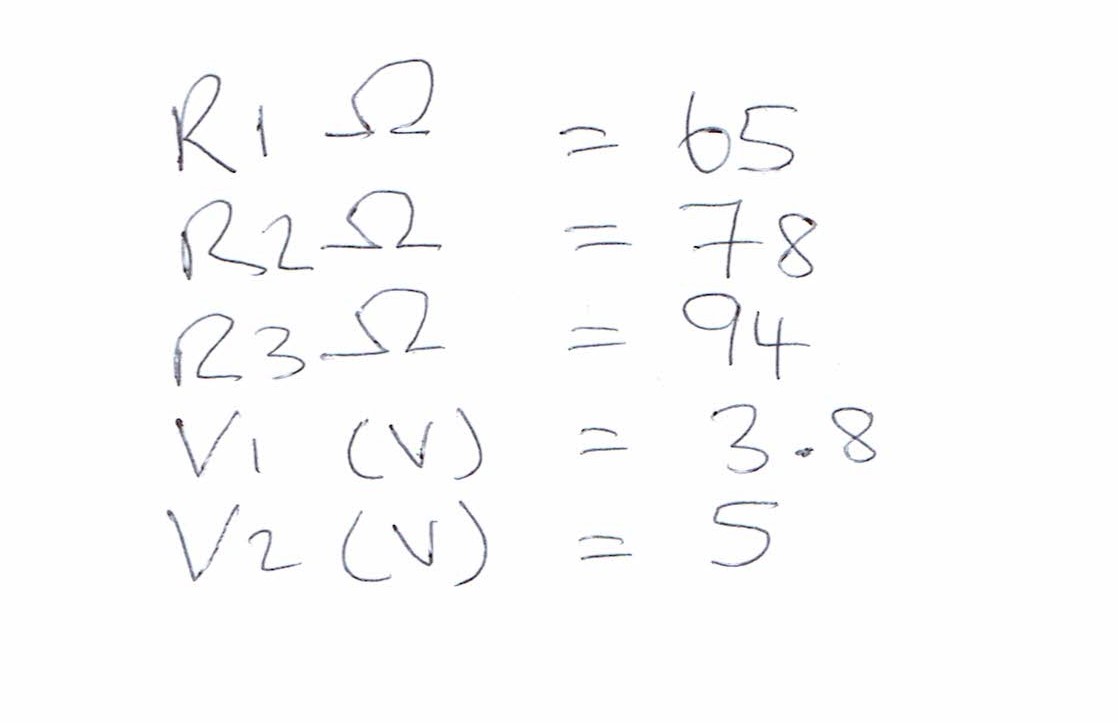 R1 Ω = 65
R2 Ω = 78
R3 Ω = 94
V1 (V) = 3.8
V2 (V) = 5